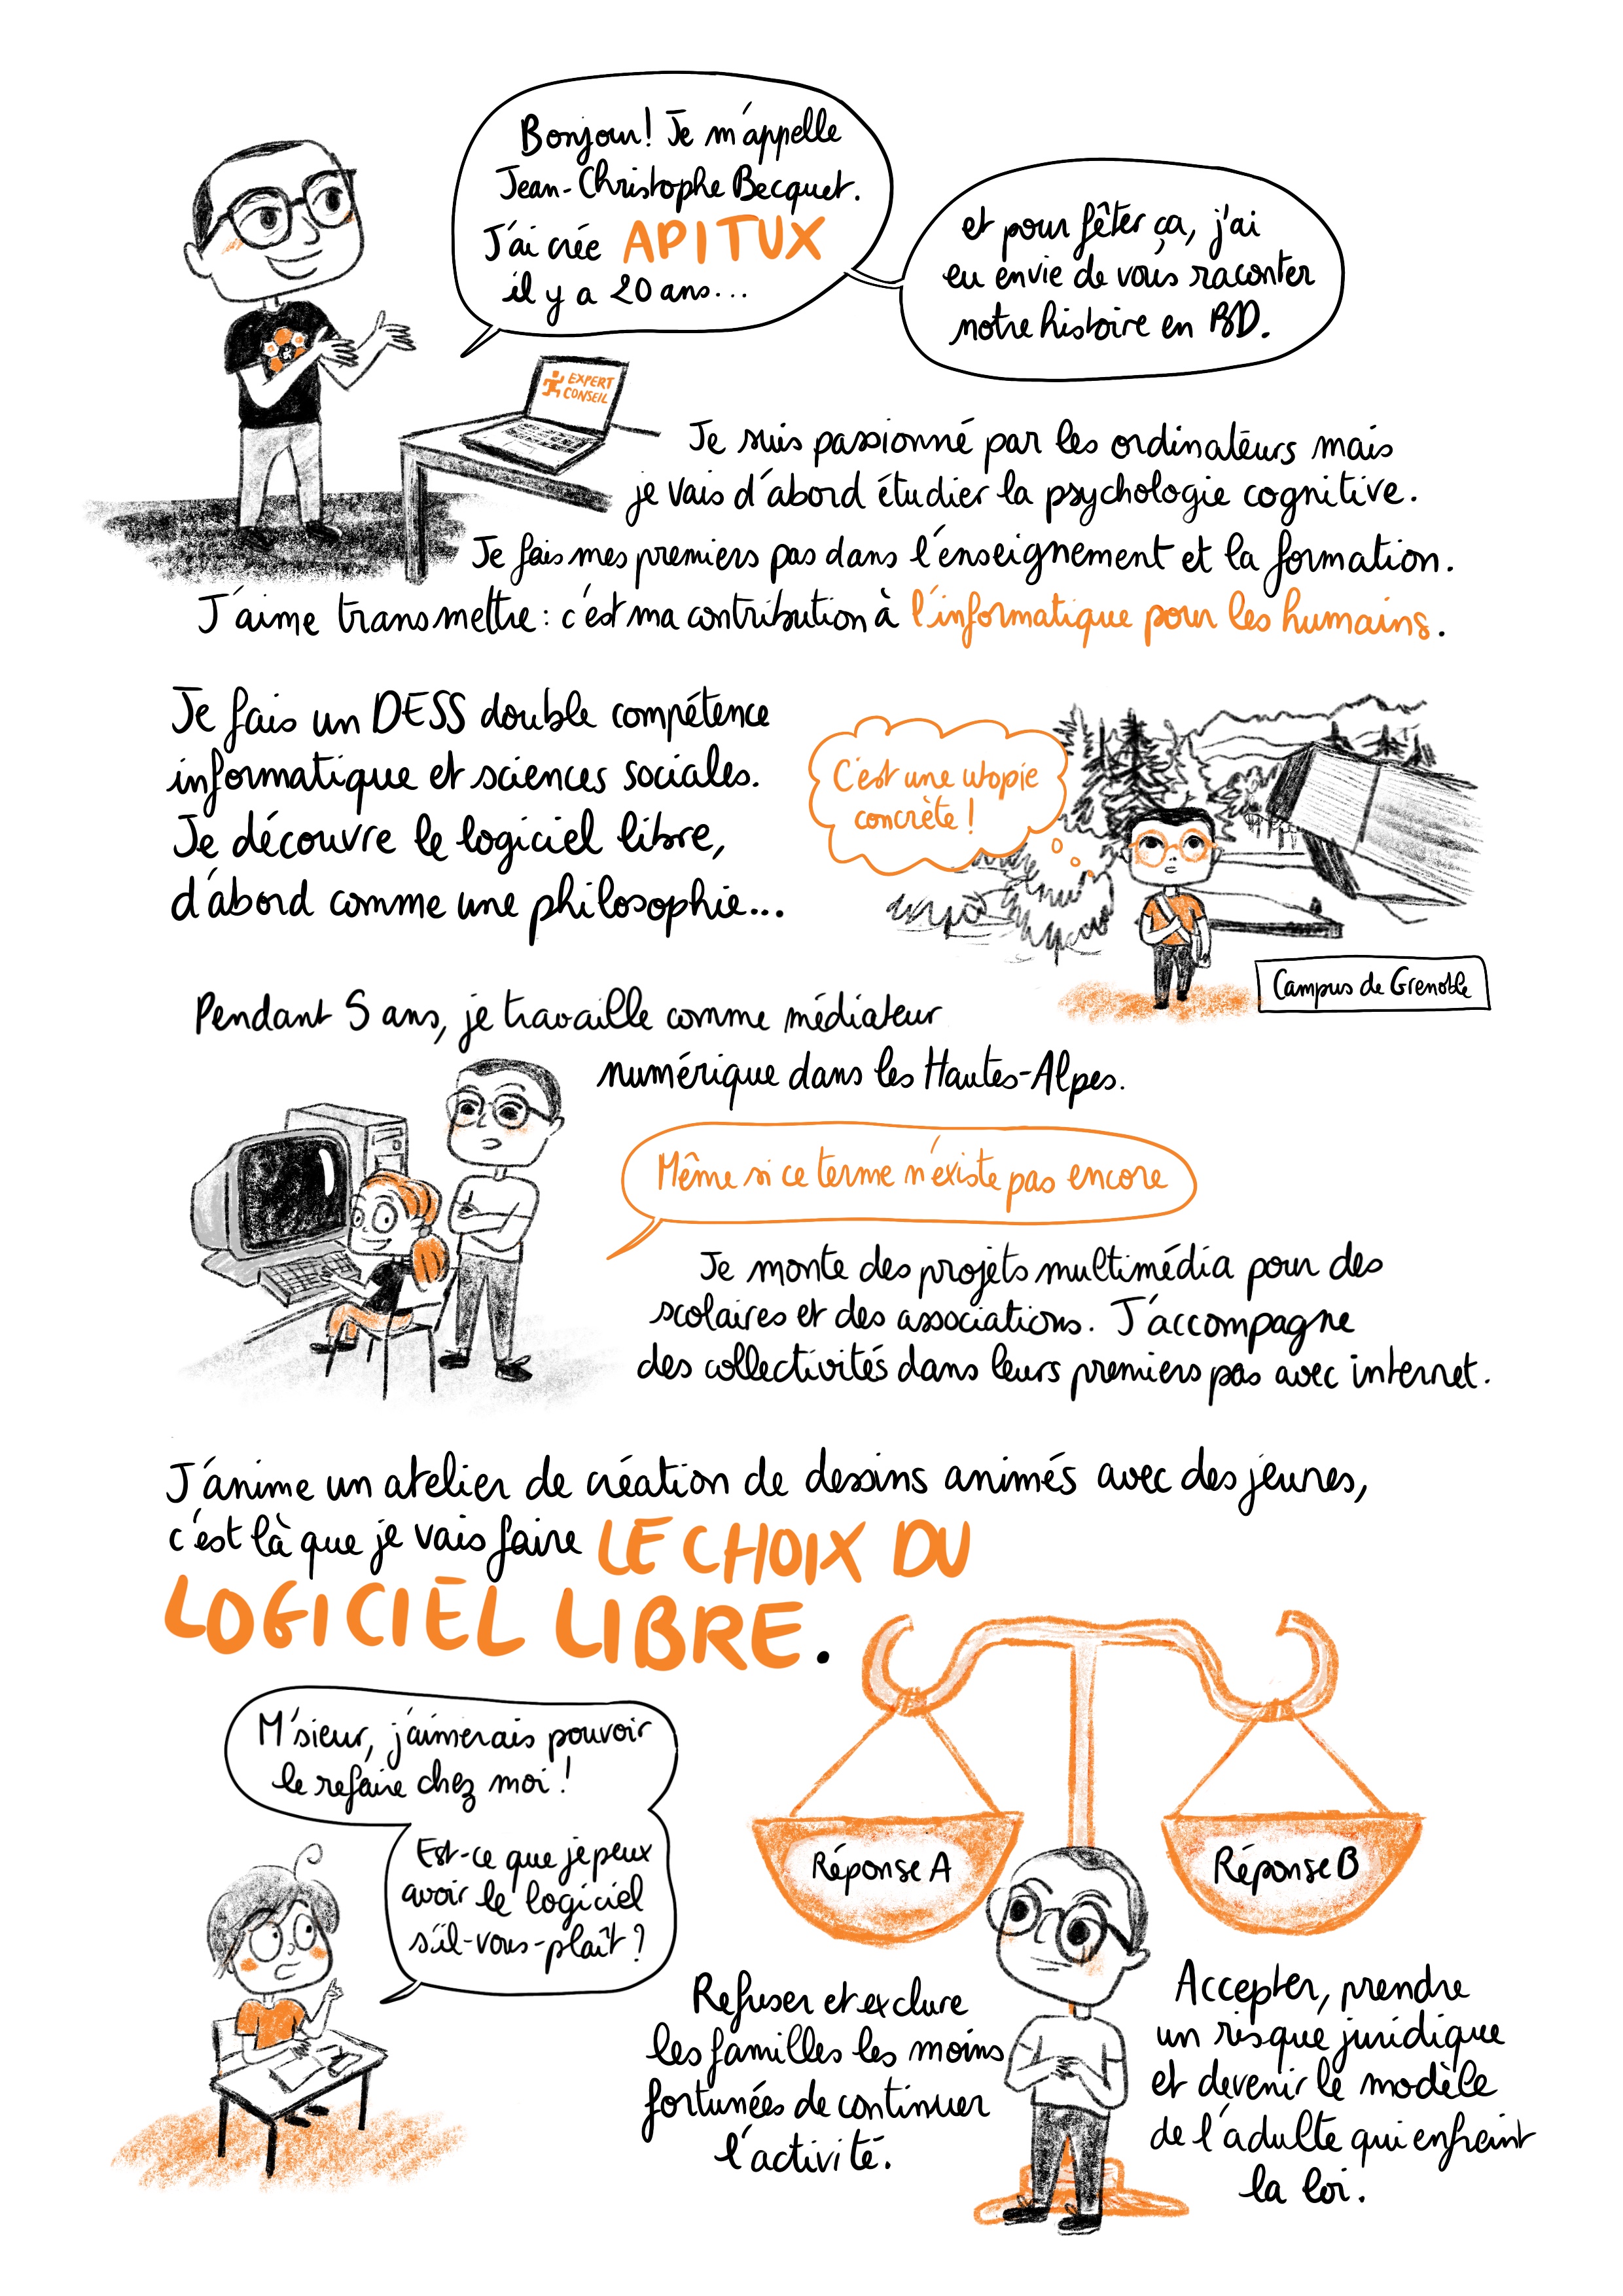 Bonjour! Je m'appelle
Jean-Christophe Becquet.
J'ai crée APITUX
il y a 20 ans...
et pour fêter ça, j'ai
eu envie de vous raconter
notre histoire en BD.
EXPERT
CONSEIL
Je suis passionné par les ordinateurs mais
je vais d'abord étudier la psychologie cognitive.
Je fais mes premiers pas dans l'enseignement et la formation.
J'aime transmettre : c'est ma contribution à l'informatique pour les humains.
Je fais un DESS double compétence
informatique et sciences sociales.
Je découvre le logiciel libre,
d'abord comme une philosophie...
C'est une utopie
concrète !
Campus de Grenoble
Pendant 5 ans, je travaille comme médiateur
numérique dans les Hautes-Alpes.
Même si ce terme n'existe pas encore
Je monte des projets multimédia pour des
scolaires et des associations. J'accompagne
des collectivités dans leurs premiers pas avec internet.
J'anime un atelier de création de dessins animés avec des jeunes,
c'est là que je vais faire LE CHOIX DU
LOGICIEL LIBRE.
M'sieur, j'aimerais pouvoir
le refaire chez moi !
Est-ce que je peux
avoir le logiciel
s'il-vous-plaît ?
Réponse A
Réponse B
Refuser et exclure
les familles les moins
fortunées de continuer
l'activité.
Accepter, prendre
un risque juridique
et devenir le modèle
de l'adulte qui enfreint
la loi.